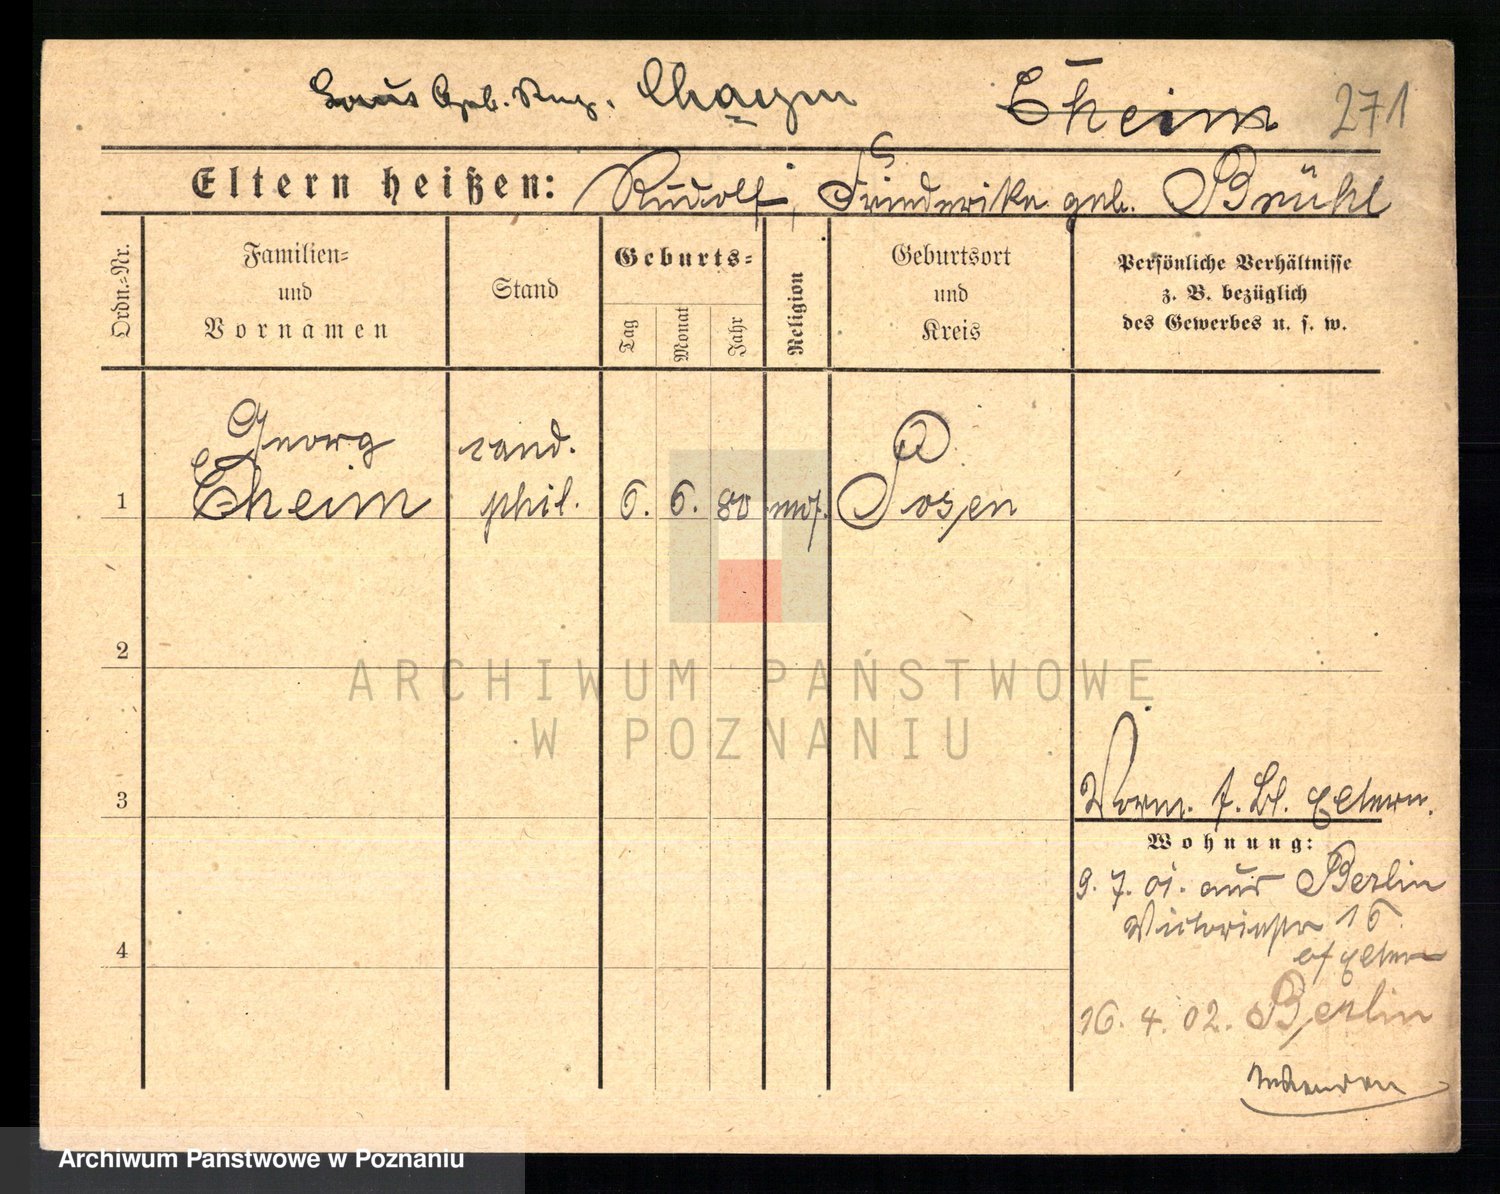 laut Geb. Reg. Chaym Eheim 271
Eltern heißen: Rudolf, Friederike geb. Brühl
Ordn.-Nr.
Familien-
und
Vornamen
Stand
Geburts-
Tag
Monat
Jahr
Religion
Geburtsort
und
Kreis
Persönliche Verhältnisse
z. B. bezüglich
des Gewerbes u. s. w.
Georg cand.
1 Eheim phil. 6. 6. 80 mos. Posen
2
3
Vorm. s. Bl. Eltern.
Wohnung:
9. 7. 01. aus Berlin
Victoriastr 16
b/ Eltern
4
16. 4. 02. Berlin
ARCHIWUM PAŃSTWOWE
W POZNANIU
Archiwum Państwowe w Poznaniu